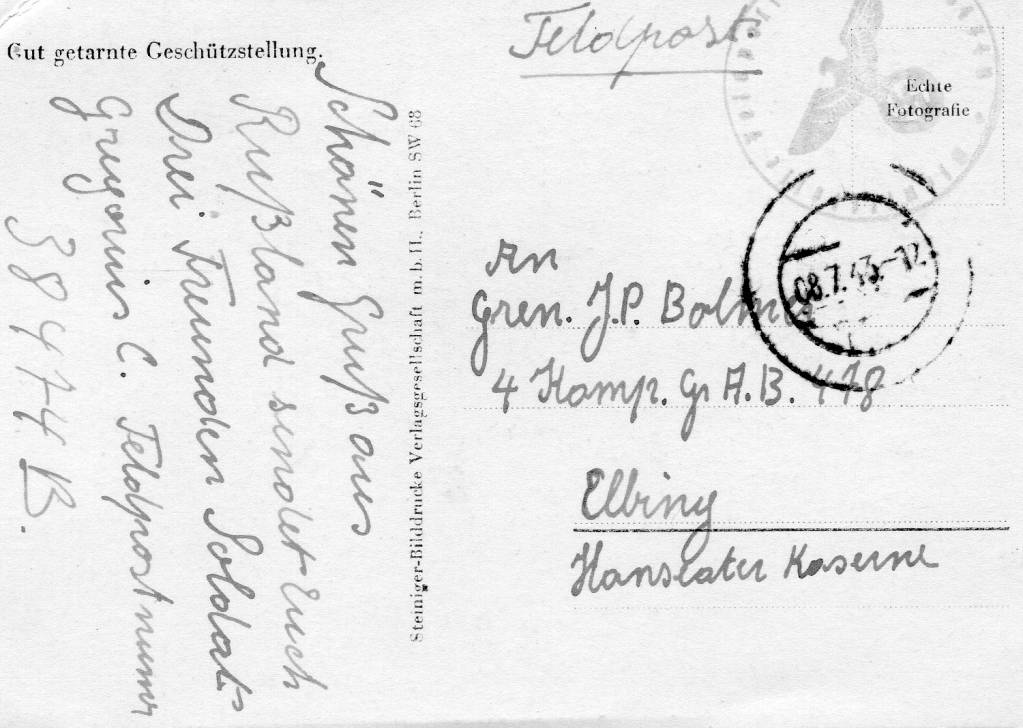 Gut getarnte Geschützstellung.
Schönen Gruß aus
Rußland sendet Euch
Drei. Freunden Soldat
C. Feldpostnumer
38974 B.
Steiniger-Bilddrucke Verlagsgesellschaft m.b.H., Berlin SW 68
Feldpost.
Echte
Fotografie
08.7.43.-12
An
Gren. J.P.
4 Komp. Gr A.B. 478
Elbing
Hanseater Kaserne